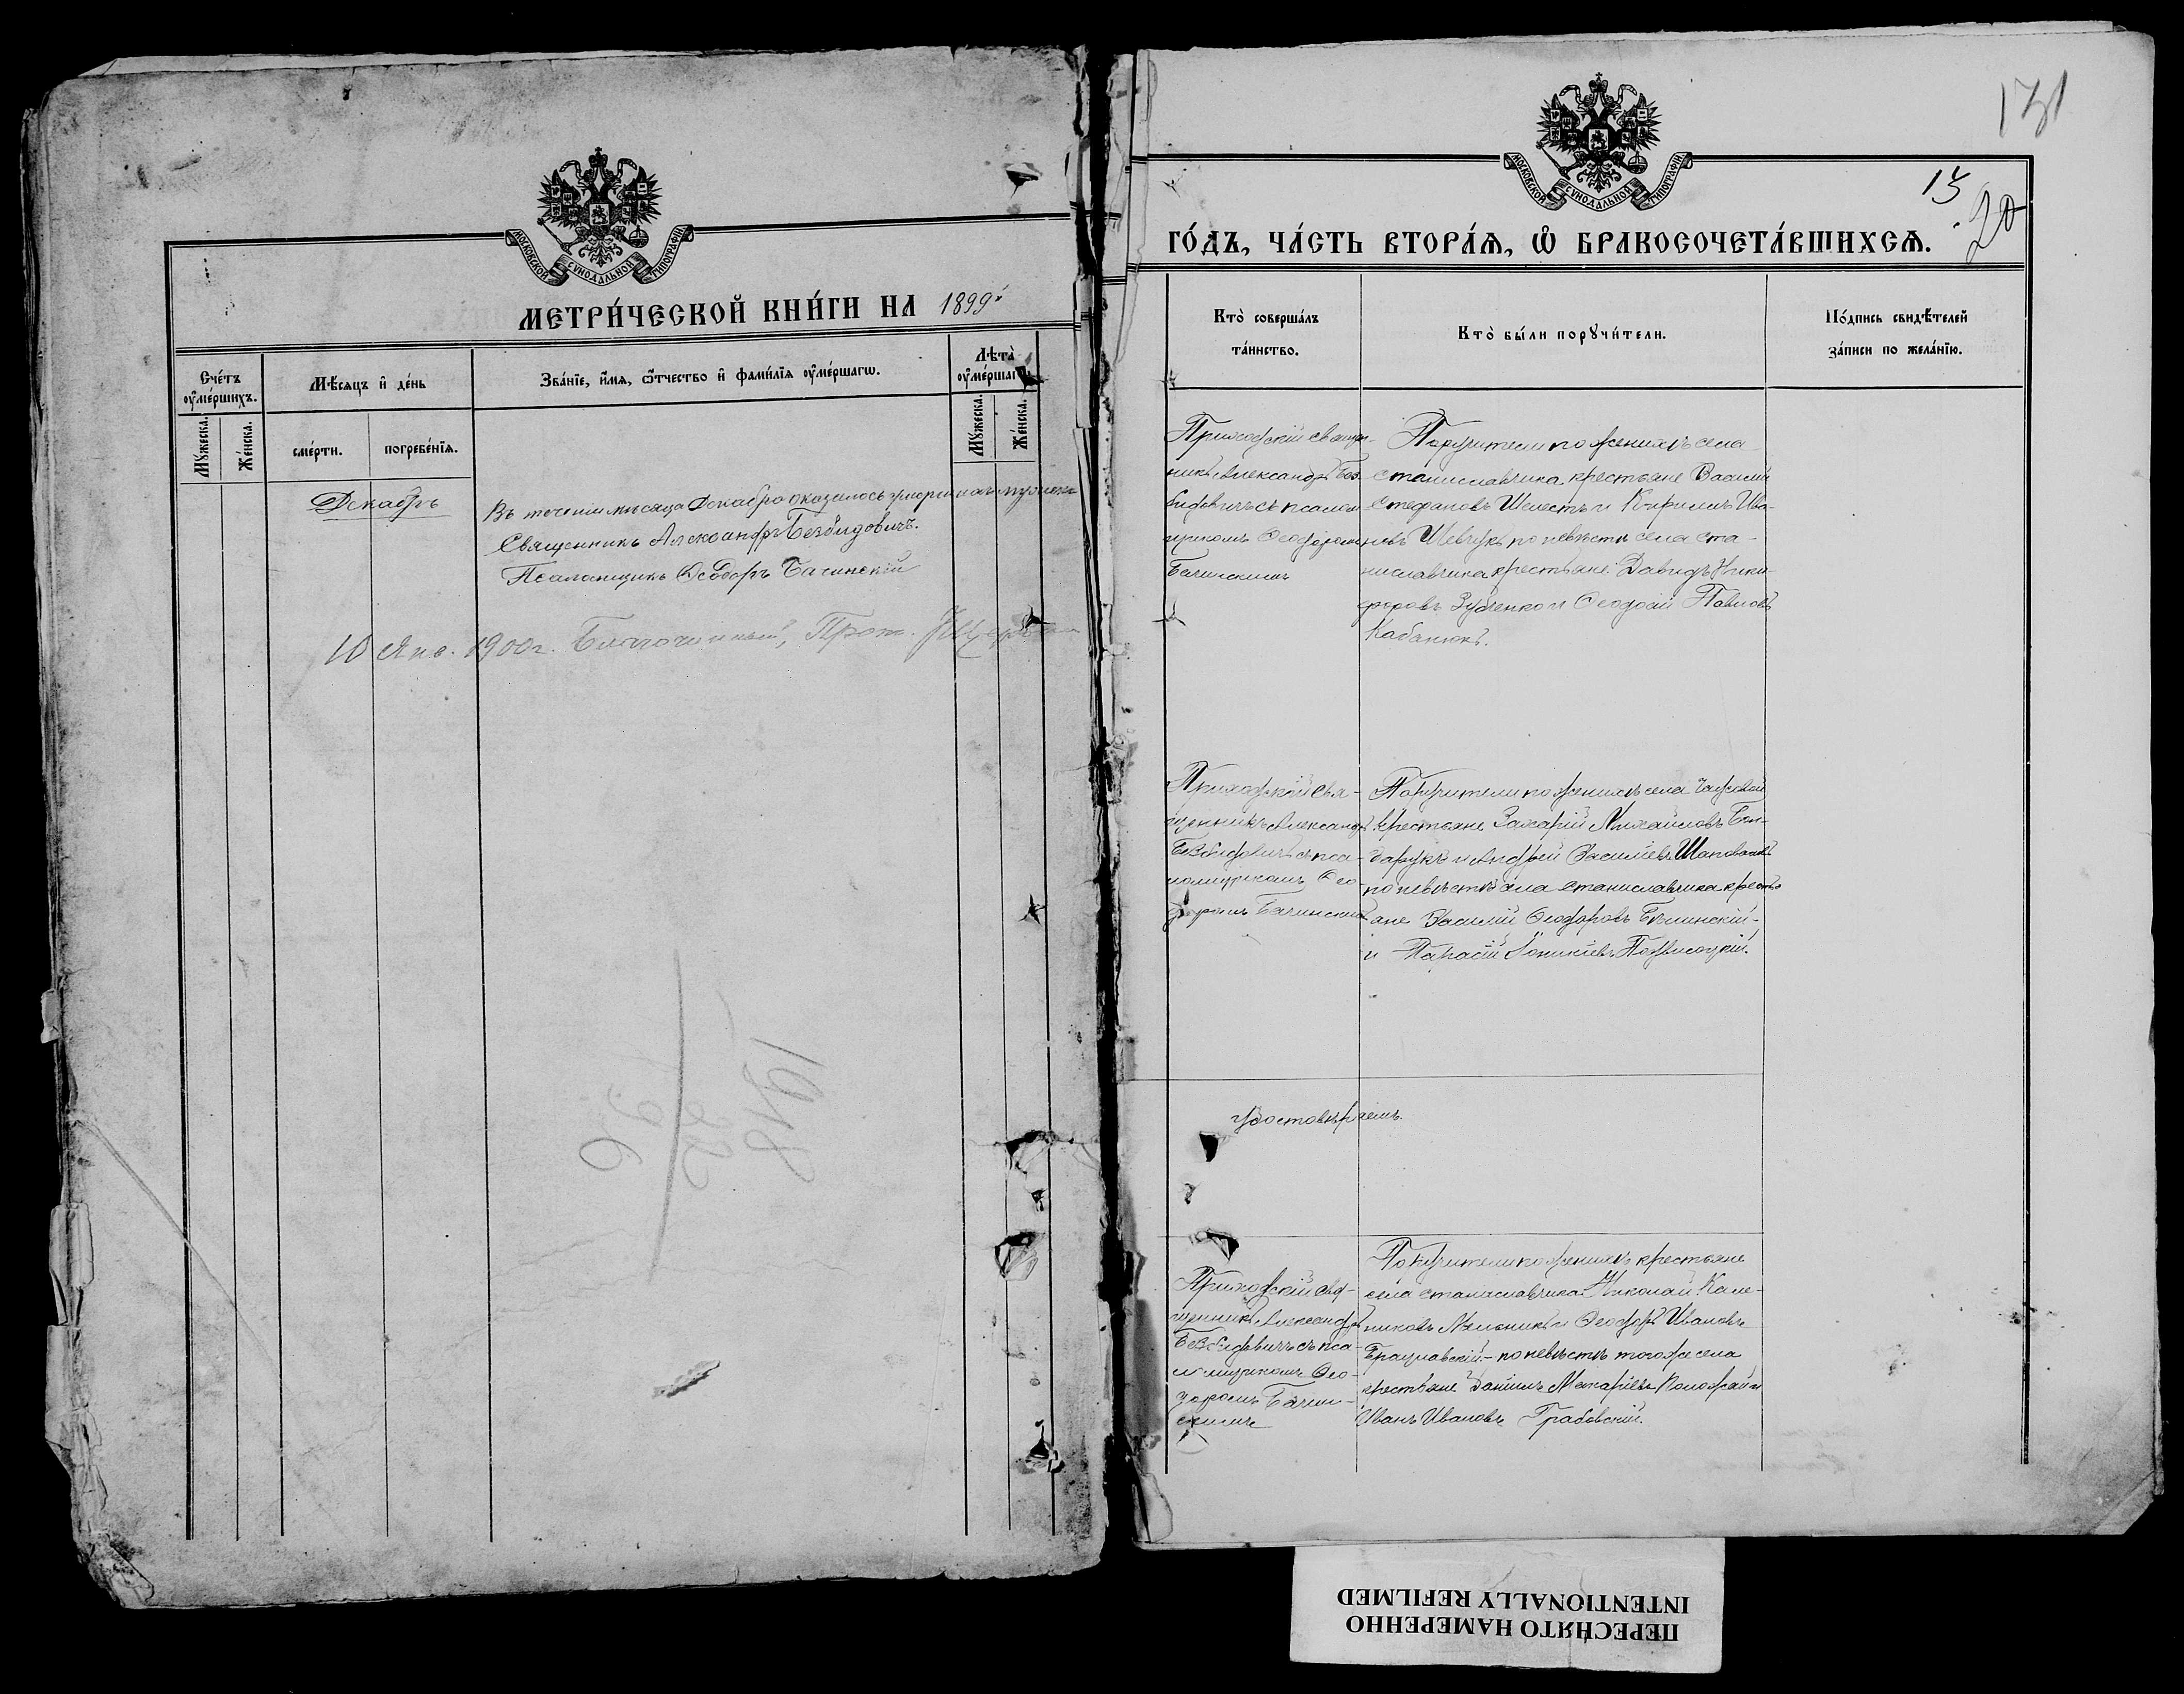 МОСКОВСКОЙ СѴНОДАЛЬНОЙ ТИПОГРАФІИ
МЕТРИ́ЧЕСКОЙ КНИ́ГИ НА 1899й
Сче́тъ ᲂу҆ме́ршихъ.
Мѣ́сяцъ и҆ де́нь
Зва́нїе, и҆́мѧ, ѻ҆́тчество и҆ фами́лїѧ ᲂу҆ме́ршагѡ.
Лѣта̀ ᲂу҆ме́ршаг
Мꙋ́жеска.
Же́нска.
сме́рти.
погребе́нїѧ.
Мꙋ́жеска.
Же́нска.
Декабрь
Въ теченіи мѣсяца Декабря оказалось умершихъ мужеска
Священникъ Александръ Безвидовичъ.
Псаломщикъ Ѳеодоръ Бачинскій
10 Янв. 1900г. Благочинный, Прот.
131
МОСКОВСКОЙ СѴНОДАЛЬНОЙ ТИПОГРАФІИ
15
20
ГО́ДЪ, ЧА́СТЬ ВТОРА́Ѧ, Ѡ҆ БРАКОСОЧЕТА́ВШИХСѦ.
Кто̀ соверша́лъ та́инство.
Кто̀ бы́ли порꙋчи́тели.
По́дпись свидѣ́телей за́писи по жела́нїю.
Приходскій священ-
никъ Александръ Без
видовичъ съ псалом
щикомъ Ѳеодоромъ
Бачинскимъ
Поручители по женихѣ села
Станиславчика крестьяне Василій
Стефановъ Шелестъ и Кириллъ Ива-
новъ Шевчукъ по невѣстѣ села Ста-
ниславчика крестьяне: Давидъ Ники
форовъ Зубченко и Ѳеодосій Павловъ
Кабанюкъ.
Приходскій Свя-
щенникъ Александръ
Безвидовичъ съ пса-
ломщикомъ Ѳео-
доромъ Бачинскимъ
Поручители по женихѣ села
крестьяне Захарій Михайловъ Бон-
дарукъ и Андрей Василіевъ Шаповалъ
по невѣстѣ села Станиславчика кресть
яне Василій Ѳеодоровъ Бѣлинскій-
и Тарасій Іоаникіевъ Подвысоцкій.
Удостовѣряемъ.
Приходскій свя-
щенникъ Александръ
Безвидовичъ съ пса-
ломщикомъ Ѳео-
доромъ Бачин-
скимъ
Поручители по женихѣ крестьяне
села Станиславчика: Николай Кале-
никовъ Мельникъ и Ѳеодоръ Ивановъ
Брацлавскій-по невѣстѣ того же села
крестьяне Даніилъ Макаріевъ Коложай и
Иванъ Ивановъ Грабовскій.
1048
22
26
ПЕРЕСНЯТО НАМЕРЕННО
INTENTIONALLY REFILMED